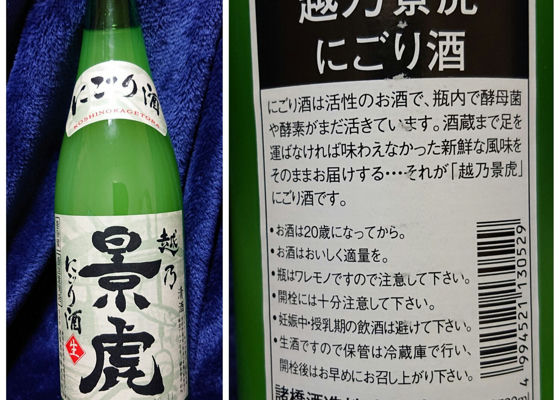 にごり酒
KOSHINOKAGETORA
越乃
景虎
にごり酒
生
清酒
越乃景虎
にごり酒
にごり酒は活性のお酒で、瓶内で酵母菌
や酵素がまだ活きています。酒蔵まで足を
運ばなければ味わえなかった新鮮な風味を
そのままお届けする…それが「越乃景虎」
にごり酒です。
•お酒は20歳になってから。
•お酒はおいしく適量を。
•瓶はワレモノですので注意して下さい。
•開栓には十分注意して下さい。
•妊娠中・授乳期の飲酒は避けて下さい。
•生酒ですので保管は冷蔵庫で行い、
開栓後はお早めにお召し上がり下さい。
4 994521 130529
諸橋酒造